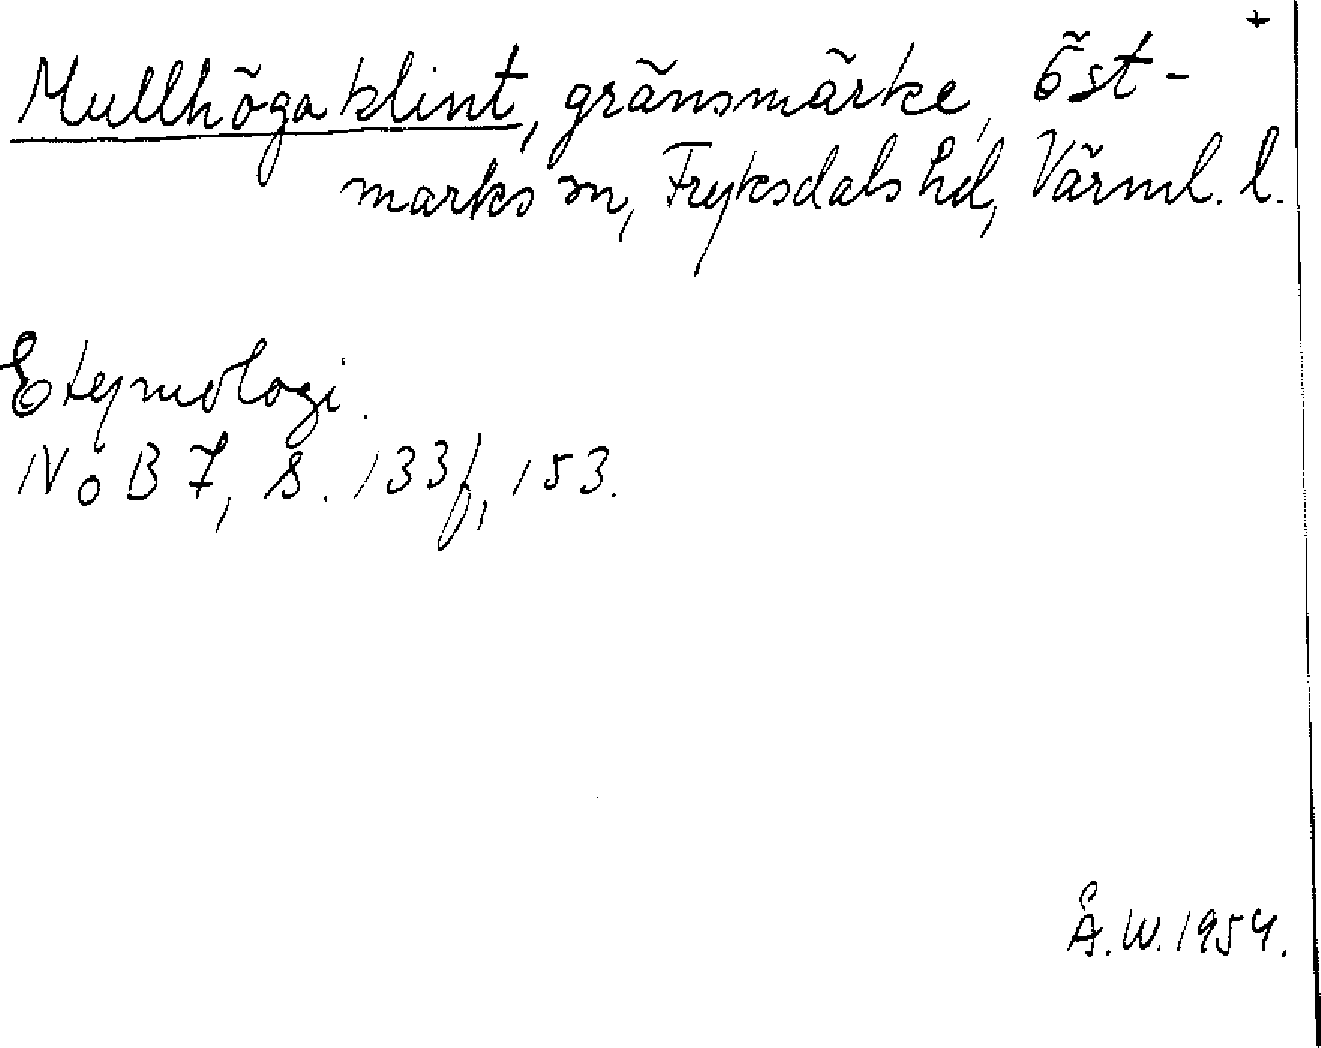 +
Mullhöga klint, gränsmärke, Öst-
marks sn, Fryksdals hd, Värml. l.
Etymologi.
NoB 7, s. 133f, 153.
Å.W. 1954.